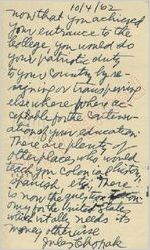 10/4/62
now that you achieved
your entrance to the
College you would do
your patriotic duty
to your country by re-
signing or transferring
elsewhere where ac-
ceptable for the continu-
ation of your education
There are plenty of
other places who would
teach you colonial history,
Spanish etc. There
is now the question
only of the Institution
which vitally needs its
money otherwise